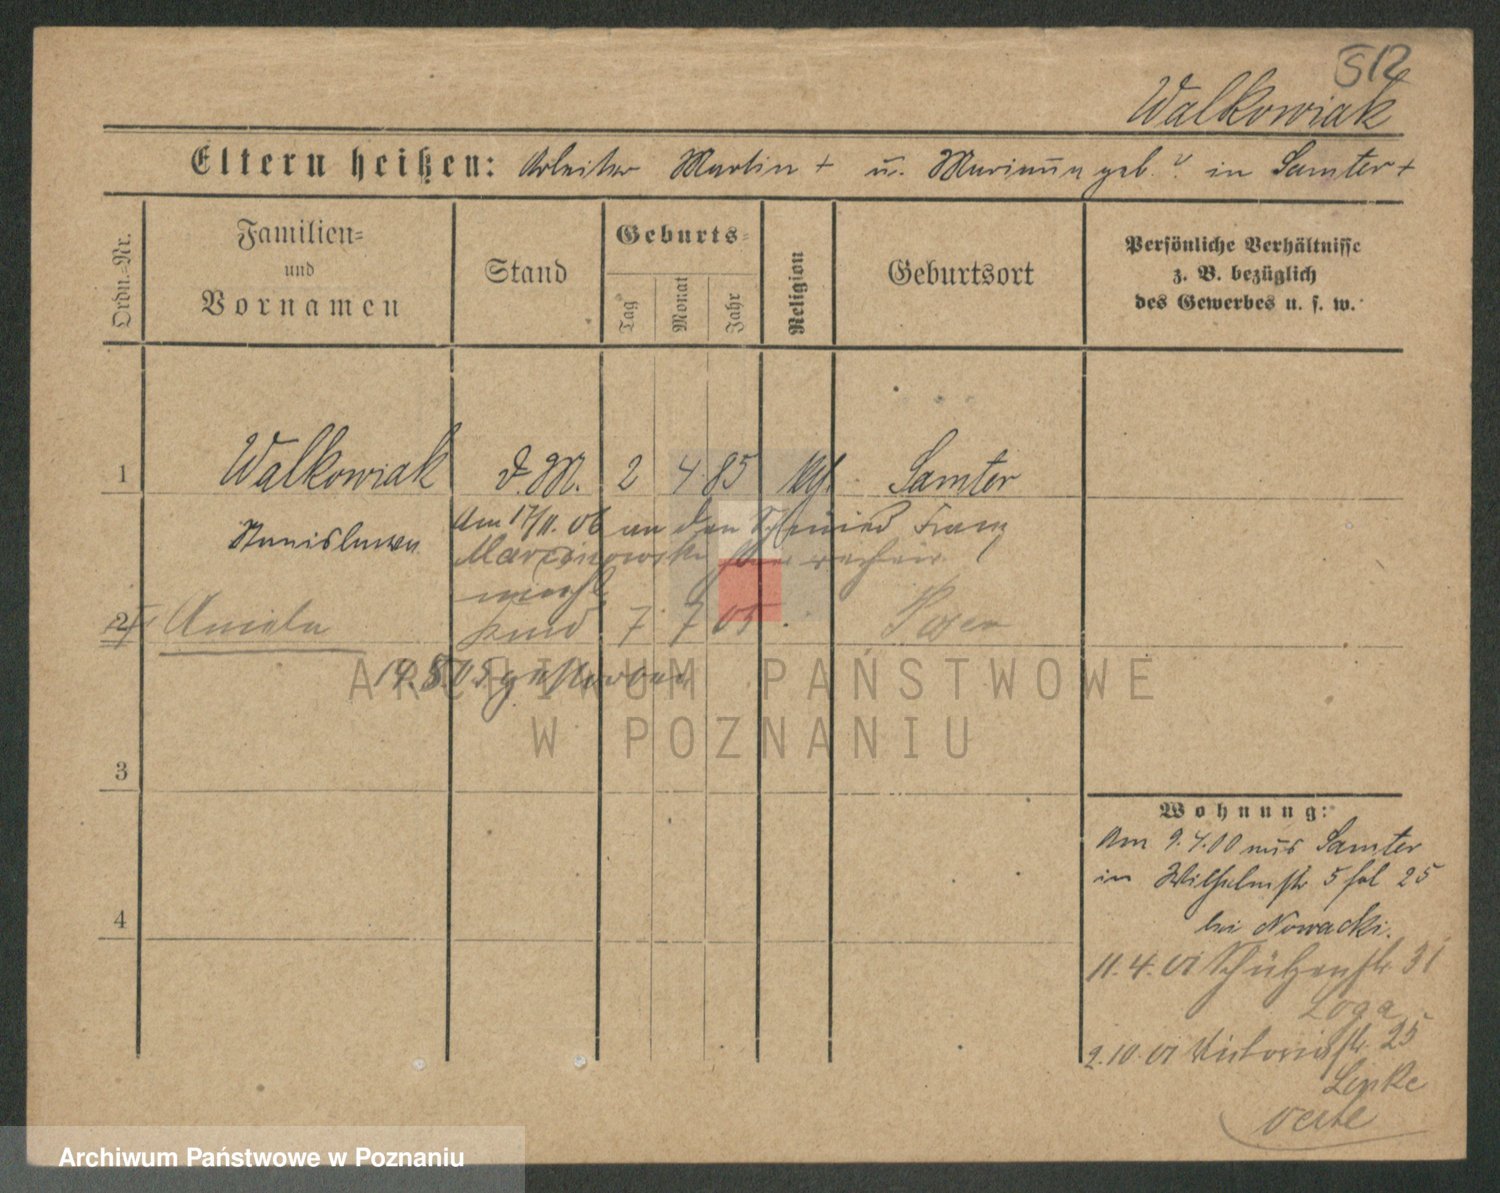 512
Walkowiak
Eltern heißen: Arbeiter Martin + u. Marianna geb. ? in Samter +
Ordn.-Nr.
Familien-
und
Vornamen
Stand
Geburts-
Tag
Monat
Jahr
Religion
Geburtsort
Persönliche Verhältnisse
z. B. bezüglich
des Gewerbes u. s. w.
1 Walkowiak d. M. 2 4. 85 Kth. Samter
Stanislawa
Am 17/11. 06 an den Schmied Franz
Marcinowski hier verheir.
2 Aniela Kind 7 7 05 Posen
19.8.05 gestorben
3
4
Wohnung:
Am 9.4.00 aus Samter
in Wilhelmstr 5 fol 25
bei Nowacki.
11.4.01 Schützenstr 31
Loga
2.10.01 Victoriastr. 25
Linke
ARCHIWUM PAŃSTWOWE
W POZNANIU
Archiwum Państwowe w Poznaniu